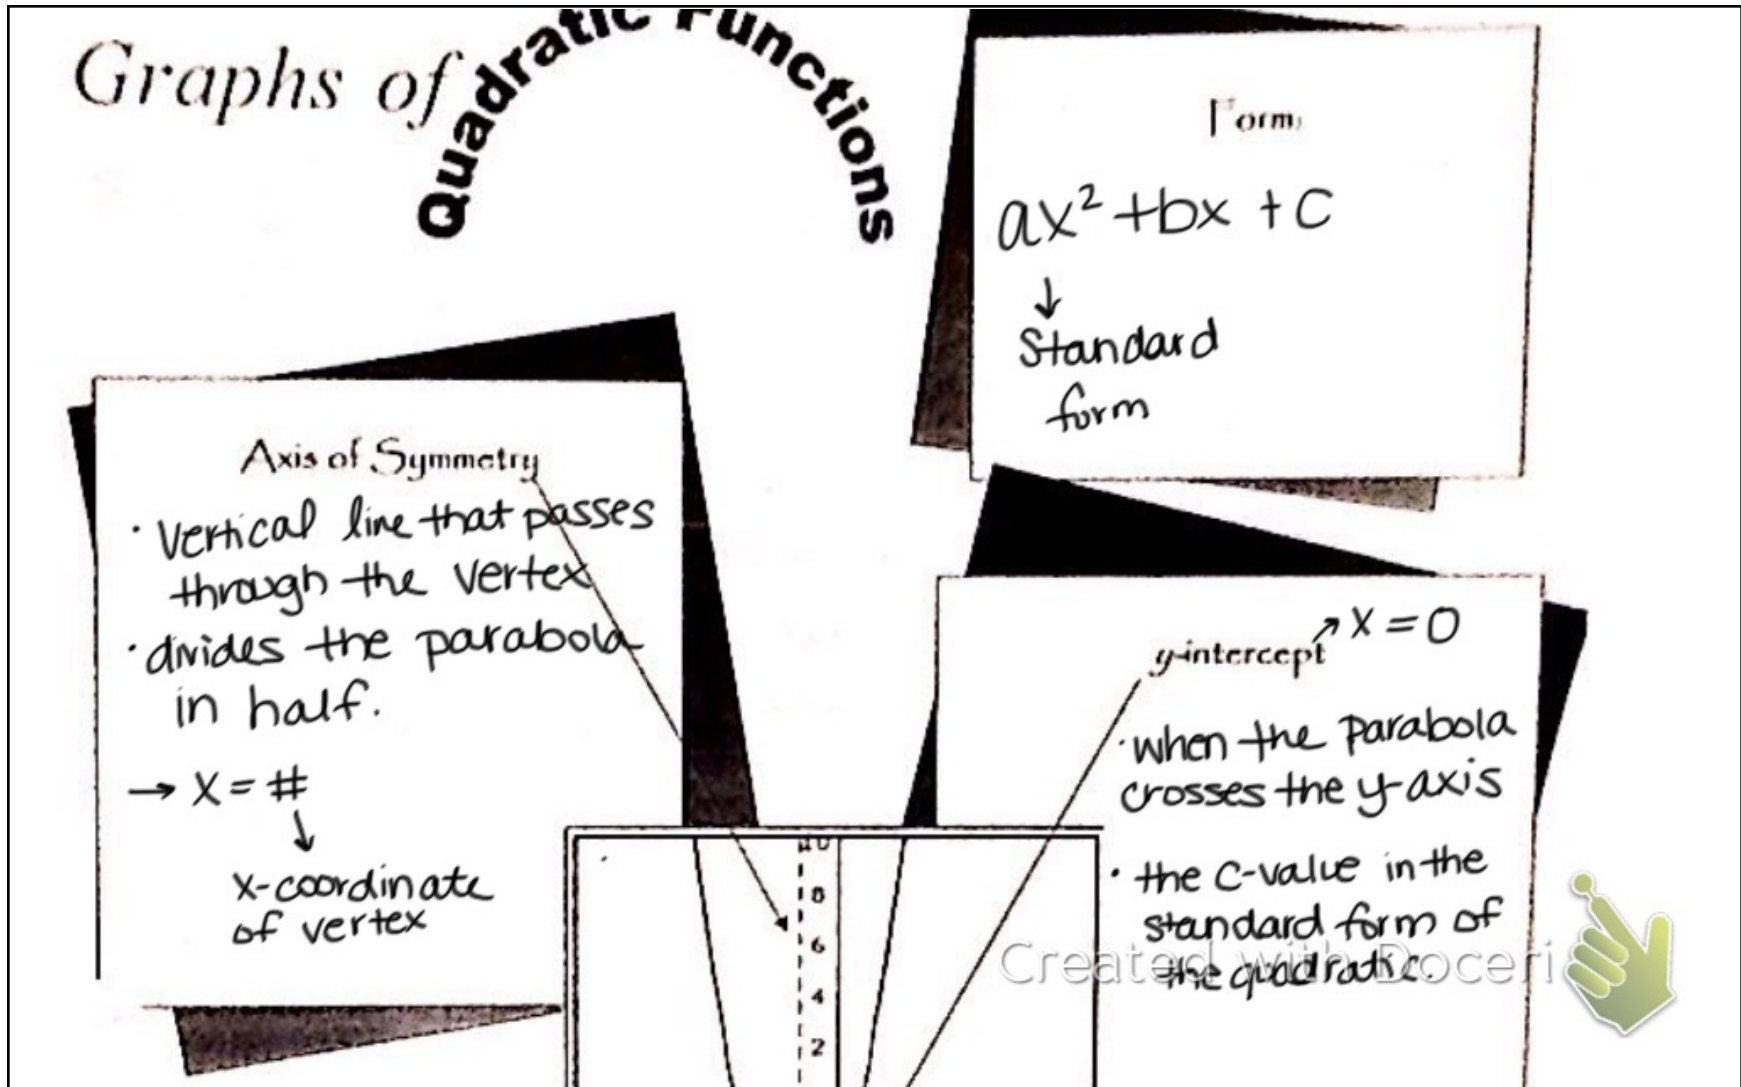 Graphs of
Quadratic Functions
Form
ax² + bx + c
↓
Standard
form
Axis of Symmetry
· Vertical line that passes
through the vertex
· divides the parabola
in half.
→ X = #
↓
x-coordinate
of vertex
y-intercept ↗ X = 0
· when the parabola
crosses the y-axis
· the c-value in the
standard form of
the quadratic.
10
8
6
4
2
Created with Doceri